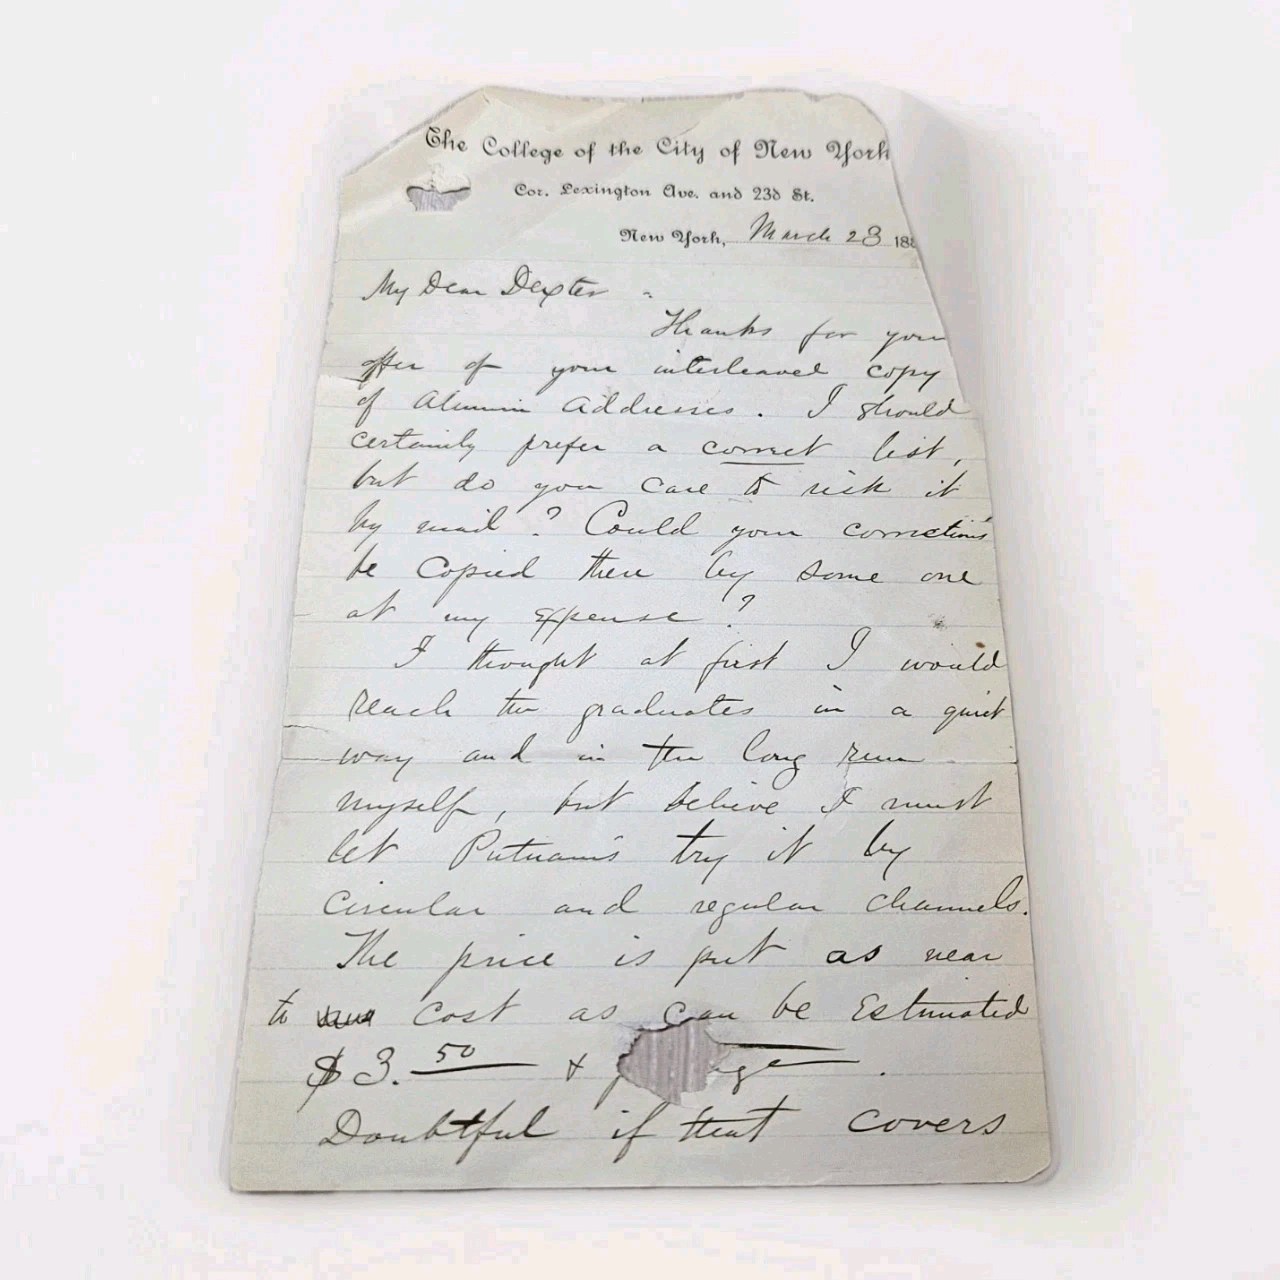 The College of the City of New York
Cor. Lexington Ave. and 23d St.
New York, March 23 188
My Dear Dexter -
Thanks for your
offer of your interleaved copy
of Alumni Addresses. I should
certainly prefer a correct list,
but do you care to risk it
by mail? Could your corrections
be copied there by some one
at my expense?
I thought at first I would
reach the graduates in a quiet
way and in the long run
myself, but believe I must
let Putnams try it by
circular and regular channels.
The price is put as near
to cost as can be estimated
$3.50 &
Doubtful if that covers